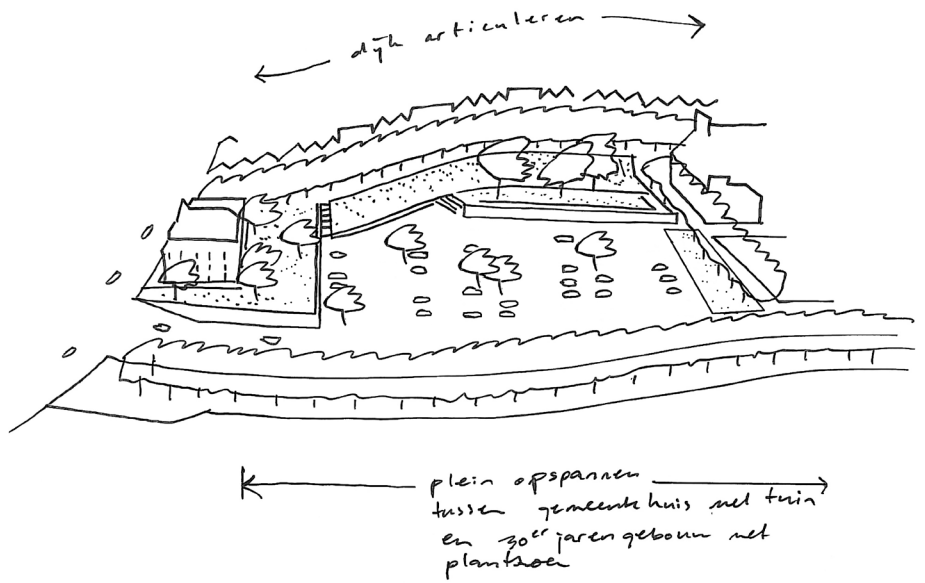 dijk articuleren
plein opspannen
tussen gemeentehuis met tuin
en 30er jaren gebouw met
plantsoen